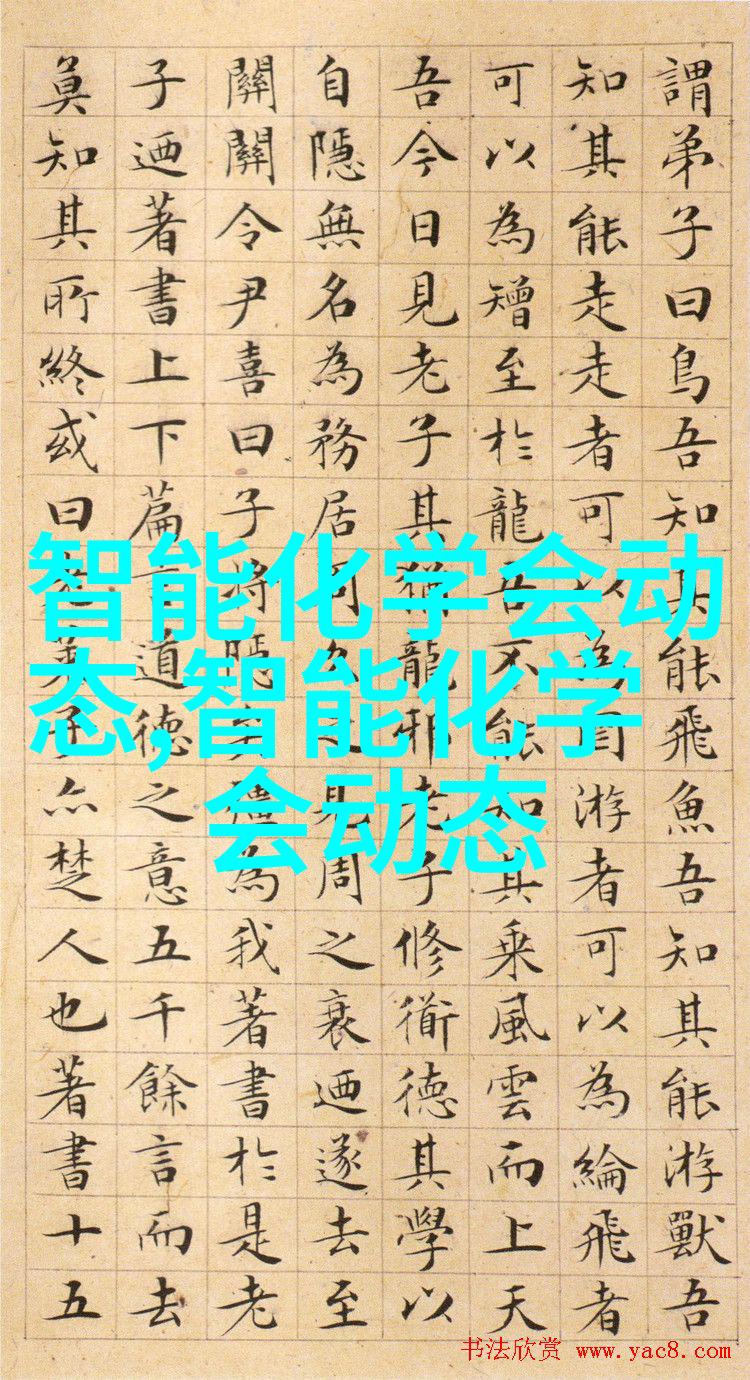 謂弟子曰鳥吾知其能飛魚吾知其能游獸吾
知其能走走者可以為罔游者可以為綸飛者
可以為矰至於龍吾不能知其乗風雲而上天
吾今日見老子其猶龍邪老子修衜德其學以
自隱無名為務居周久之見周之衰迺遂去至
關關令尹喜曰子將隱矣彊為我著書於是老
子迺著書上下篇言道德之意五千餘言而去
莫知其所終或曰老萊子亦楚人也著書十五
智能化学会动
态,智能化学
会动态
书法欣赏 www.yac8.com